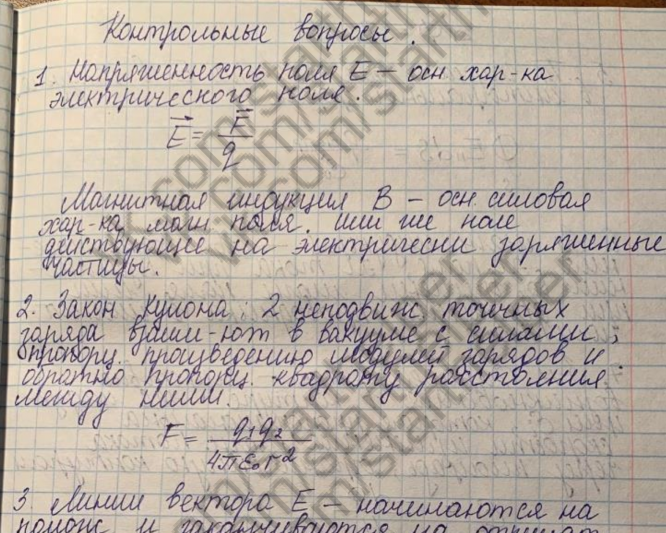 Контрольные вопросы.
1. Напряженность поля E – осн. хар-ка
электрического поля.
E = F / q
Магнитная индукция B – осн. силовая
хар-ка магн. поля. Или же поле
действующее на электрически заряженные
частицы.
2. Закон Кулона: 2 неподвиж. точечных
заряда взаим-ют в вакууме с силами,
пропорц. произведению модулей зарядов и
обратно пропорц. квадрату расстояния
между ними.
F = q1q2 / 4πε₀r²
3 Линии вектора E – начинаются на
полож и заканчиваются на отрицат